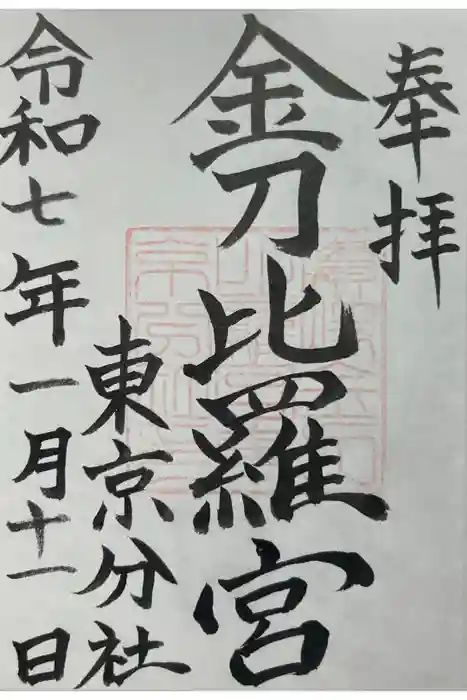 奉拝
金刀比羅宮
東京分社
令和七年一月十一日